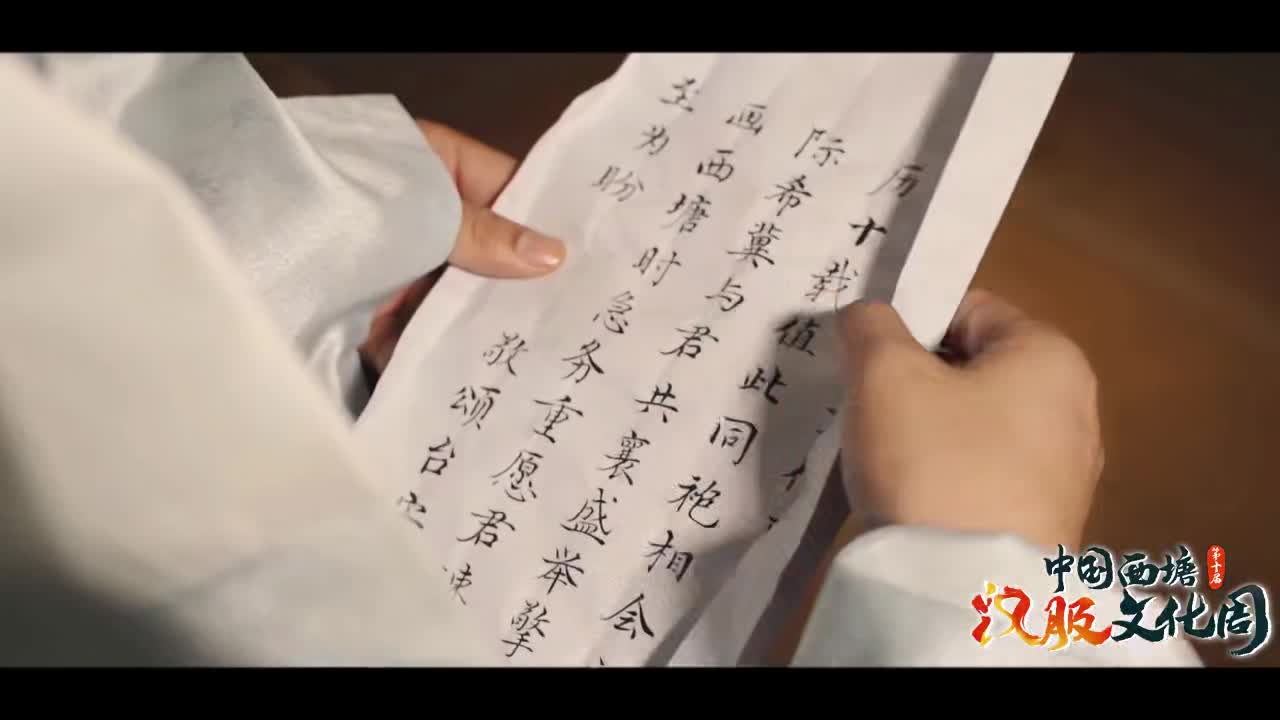 历十载值此同袍相会
际希冀与君共襄盛举擎
画西塘时急务重愿君速
至为盼
敬颂台
中国西塘
第十届
汉服文化周